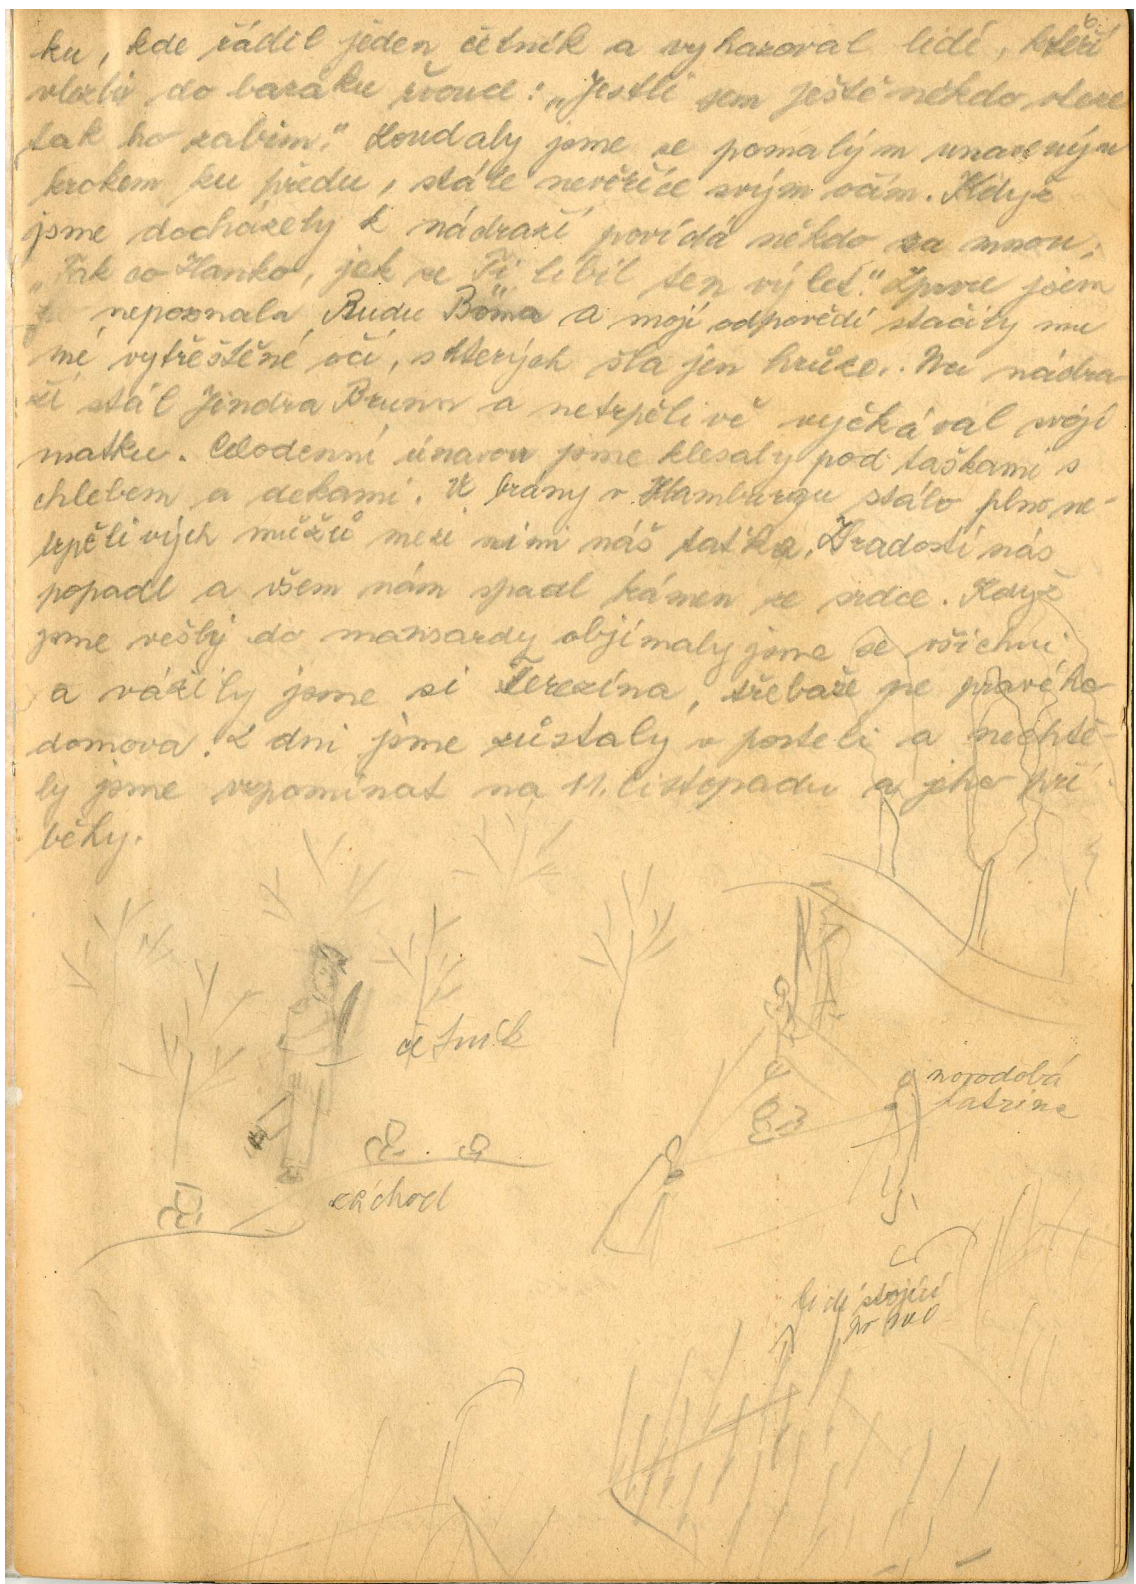 6.
ku, kde řádil jeden četník a vyhazoval lidi, kteří
vlezli do baráku řvouce: „Jestli sem ještě někdo vleze
tak ho zabim." Loudaly jsme se pomalým unaveným
krokem ku předu, stále nevěříce svým očím. Když
jsme docházely k nádraží povídá někdo za mnou:
„Tak co Hanko, jak se Ti líbil ten výlet." Zprvu jsem
nepoznala Rudu Böma a mojí odpovědí stačily mu
mé vytřeštěné oči, s kterých šla jen hrůza. Na nádra-
ží stál Jindra Brunn a netrpělivě vyčkával svojí
matku. Celodenní únavou jsme klesaly pod taškami s
chlebem a dekami. U brány v Hamburgu stálo plno ne-
trpělivých mužů mezi nimi náš taťka. Z radostí nás
popadl a všem nám spadl kámen ze srdce. Když
jsme vešly do mansardy objímaly jsme se všichni
a vážily jsme si Terezína, třebaže ne pravého
domova. 2 dni jsme zůstaly v posteli a nechtě-
ly jsme vzpomínat na 11. listopadu a jeho pří
běhy.
četník
novodobá
latrina
záchod
lidi stojící